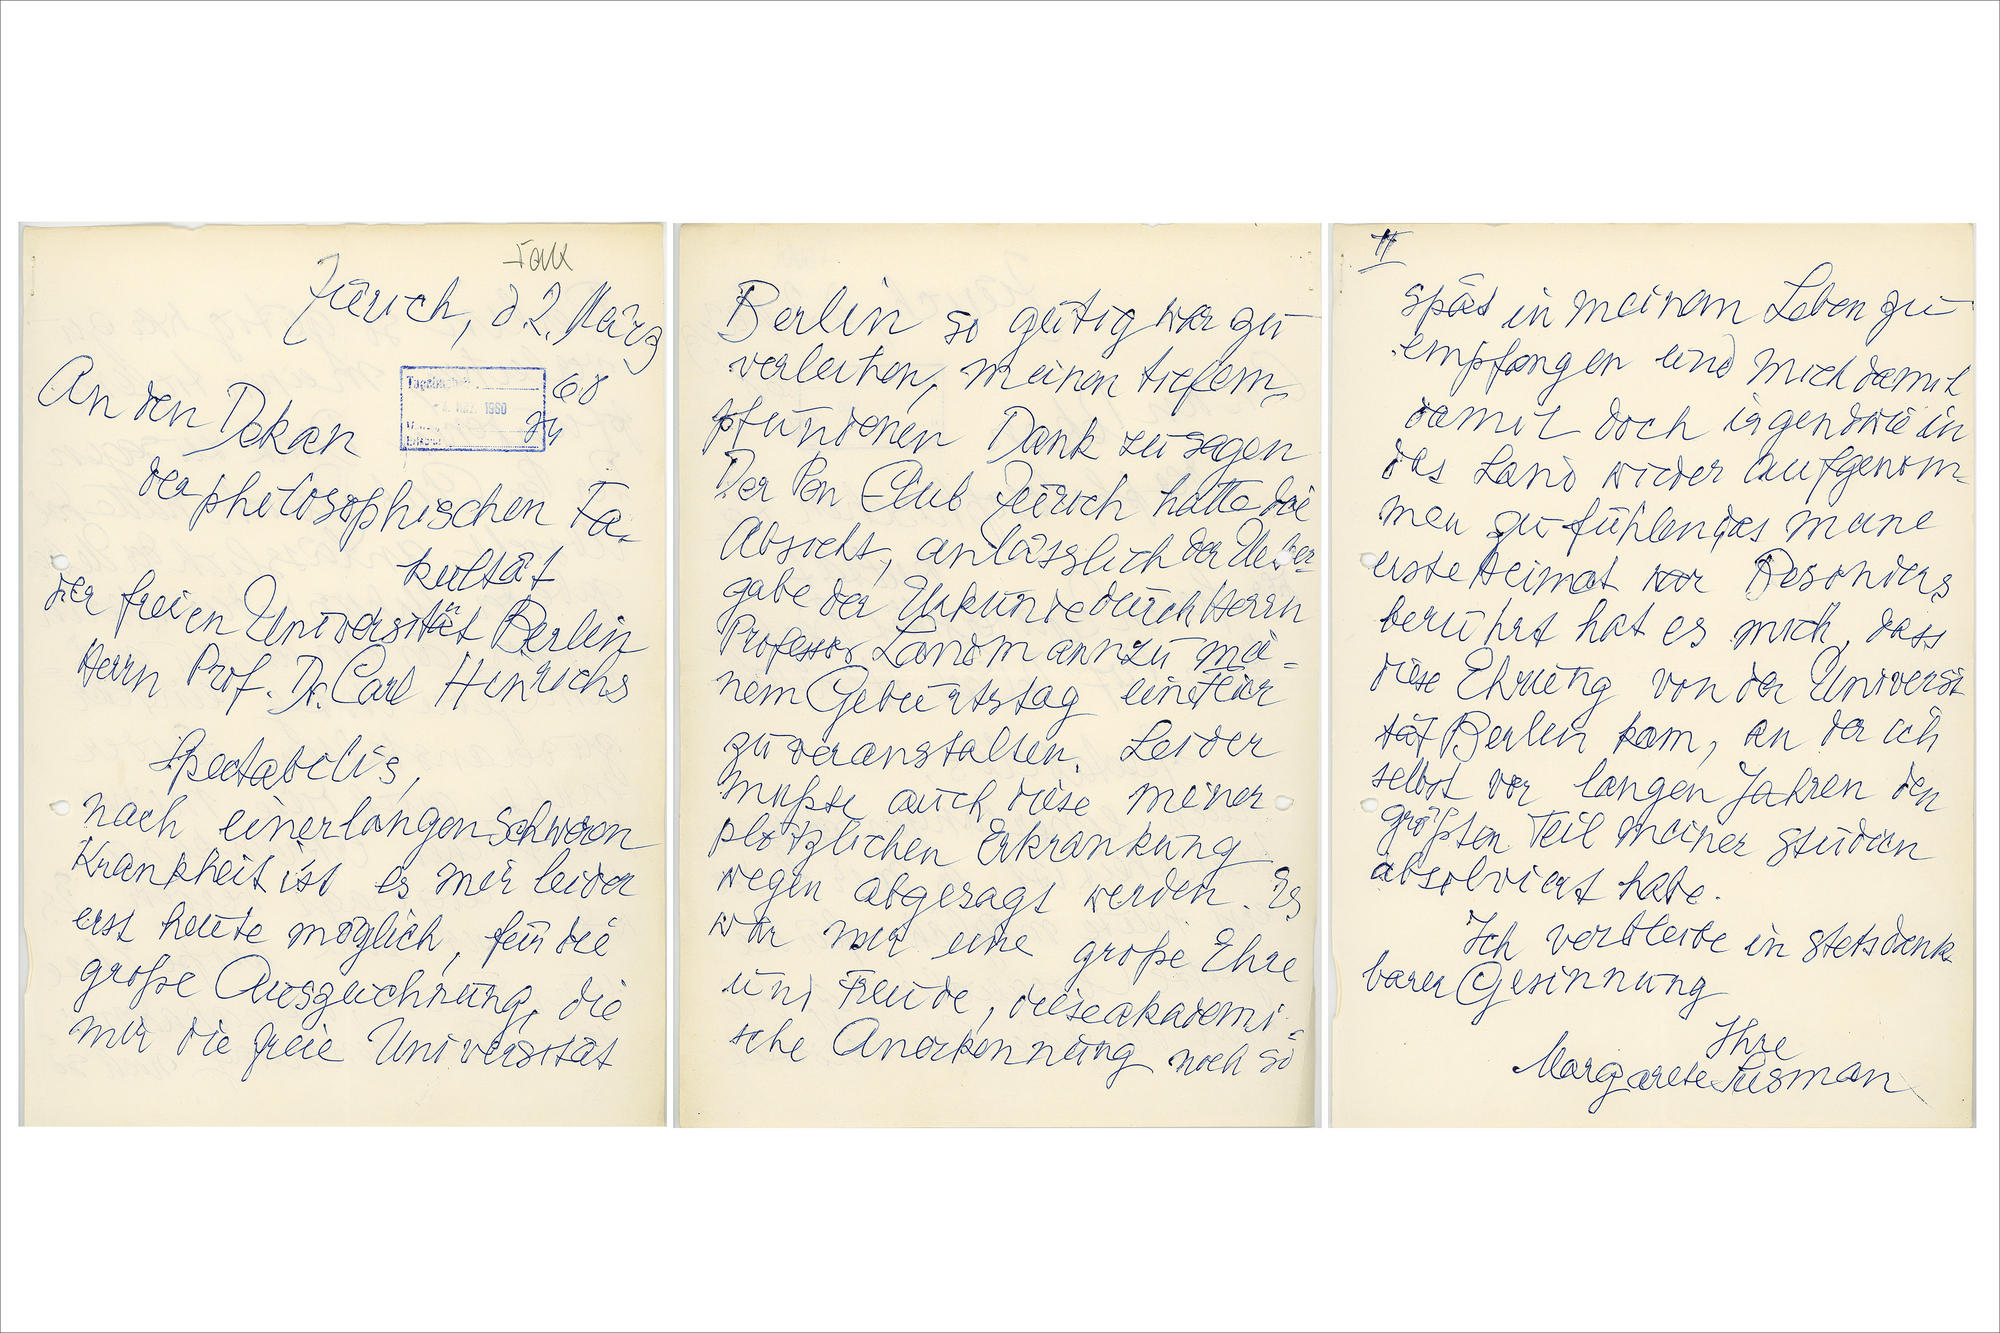 Zürich, d. 2. März
60
An den Dekan
Tagebuch
1960
der philosophischen Fa-
kultät
der freien Universität Berlin
Herrn Prof. Dr. Carl Hinrichs
Spectabilis,
nach einer langen schweren
Krankheit ist es mir leider
erst heute möglich, für die
große Auszeichnung, die
mir die freie Universität
Berlin so gütig war zu
verleihen, meinen tiefem-
pfundenen Dank zu sagen
Der Pen Club Zürich hatte die
Absicht, anlässlich der Ueber-
gabe der Urkunde durch Herrn
Professor Landmann zu mei-
nem Geburtstag eine Feier
zu veranstalten. Leider
mußte auch diese meiner
plötzlichen Erkrankung
wegen abgesagt werden. Es
war mir eine große Ehre
und Freude, diese akademi-
sche Anerkennung noch so
II
spät in meinem Leben zu
empfangen und mich damit
damit doch irgendwie in
das Land wieder aufgenom-
men zu fühlen, das meine
erste Heimat war Besonders
berührt hat es mich, dass
diese Ehrung von der Universi
tät Berlin kam, an der ich
selbst vor langen Jahren den
größten Teil meiner Studien
absolviert habe.
Ich verbleibe in stets dank-
barer Gesinnung
Ihre
Margarete Susman